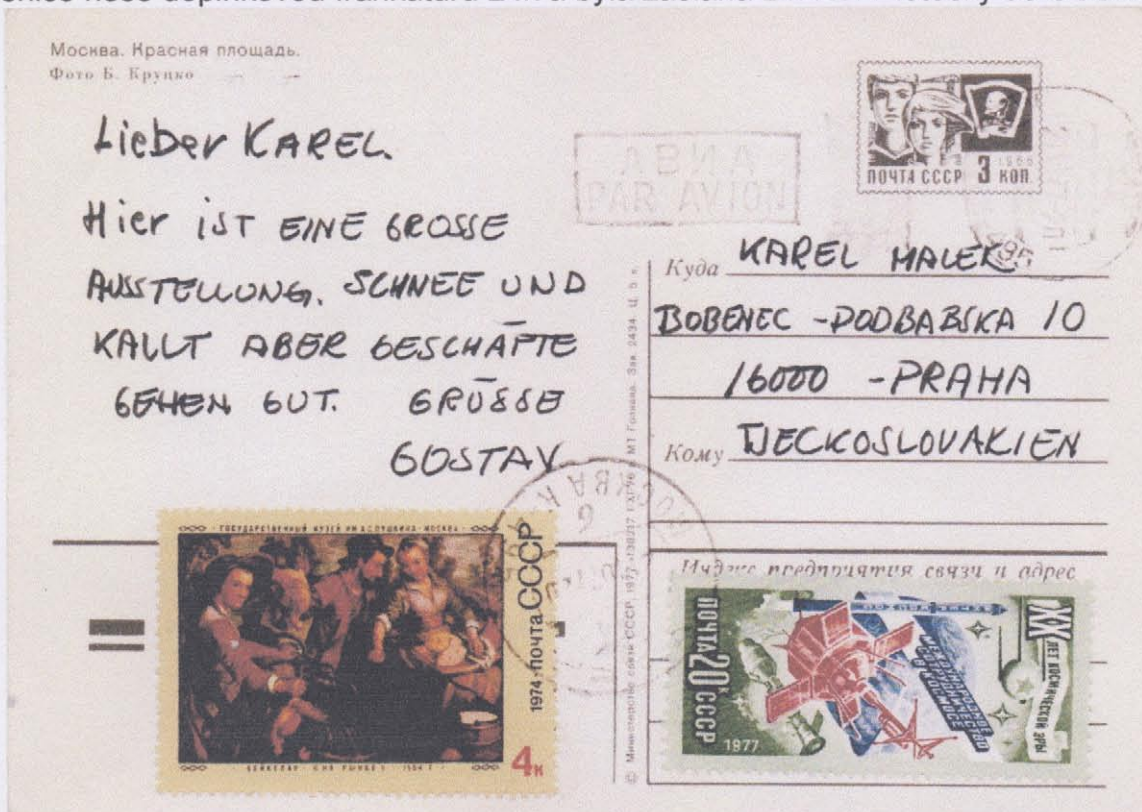 Москва. Красная площадь.
Фото Б. Круцко
Lieber KAREL.
Hier iST EINE GROSSE
AUSSTELLUNG. SCHNEE UND
KALLT ABER GESCHÄFTE
GEHEN GUT. GRÜSSE
GOSTAV
АВИА
PAR AVION
ПОЧТА СССР 3 КОП.
1966
Куда KAREL MALEK
BOBENEC - PODBABSKA 10
16000 - PRAHA
Кому TJECKOSLOVAKIEN
Индекс предприятия связи и адрес
© Министерство связи СССР. 1977
МТ Гознака. Зак. 2434. Ц. 5 к.
МОСКВА
ГОСУДАРСТВЕННЫЙ МУЗЕЙ ИМ. А.С. ПУШКИНА · МОСКВА
1974 · ПОЧТА СССР
4к
БЕЙКЕЛАР
ПОЧТА 20к СССР
1977
МЕЖДУНАРОДНОЕ
СОТРУДНИЧЕСТВО
В КОСМОСЕ
XX
ЛЕТ КОСМИЧЕСКОЙ ЭРЫ